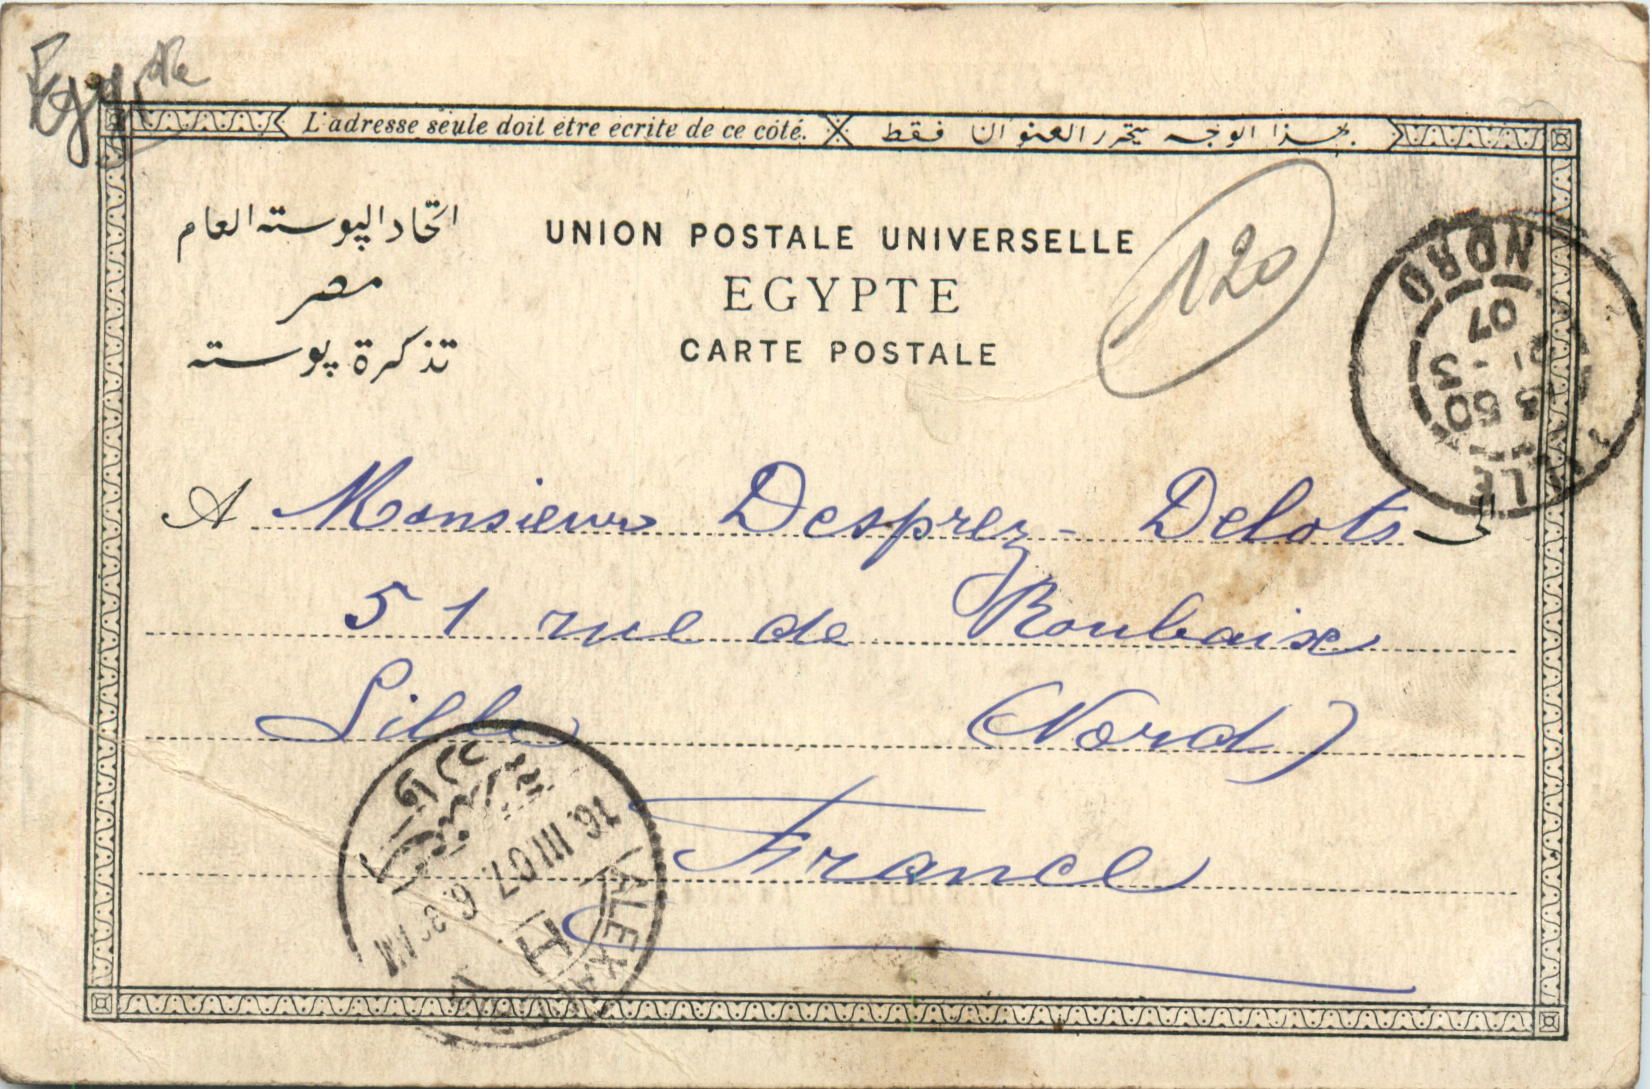 Egypte
L'adresse seule doit être écrite de ce côté.
بهذا الوجه يتحرر العنوان فقط
اتحاد البوسته العام
مصر
تذكرة بوسته
UNION POSTALE UNIVERSELLE
EGYPTE
CARTE POSTALE
120
LILLE
3 50
21 - 3
07
NORD
A Monsieur Desprez-Delots الى
51 rue de Roubaix
Lille (Nord)
France
16. III 07. 6.30 AM